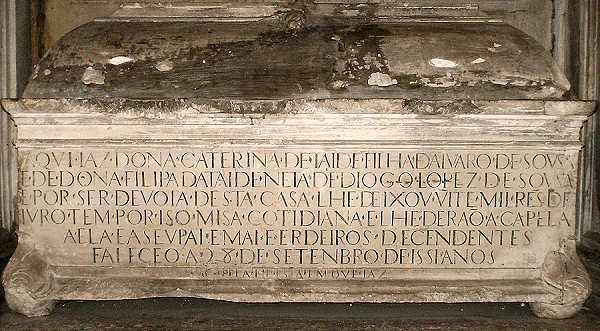 AQVI·IAZ·DONA·CATERINA·DE·TAIDE·FILHA·DALVARO·DE·SOVSA
E·DE·DONA·FILIPA·DATAIDE·NETA·DE·DIOGO·LOPEZ·DE·SOVSA
E·POR·SER·DEVOTA·DESTA·CASA·LHE·DEIXOV·VITE·MIL·RES·DE
IVRO·TEM·POR·ISO·MISA·COTIDIANA·E·LHE·DERAO·A·CAPELA
A·ELA·E·A·SEV·PAI·E·MAI·E·ERDEIROS·DECENDENTES
FALECEO·A·28·DE·SETENBRO·DE·ANOS